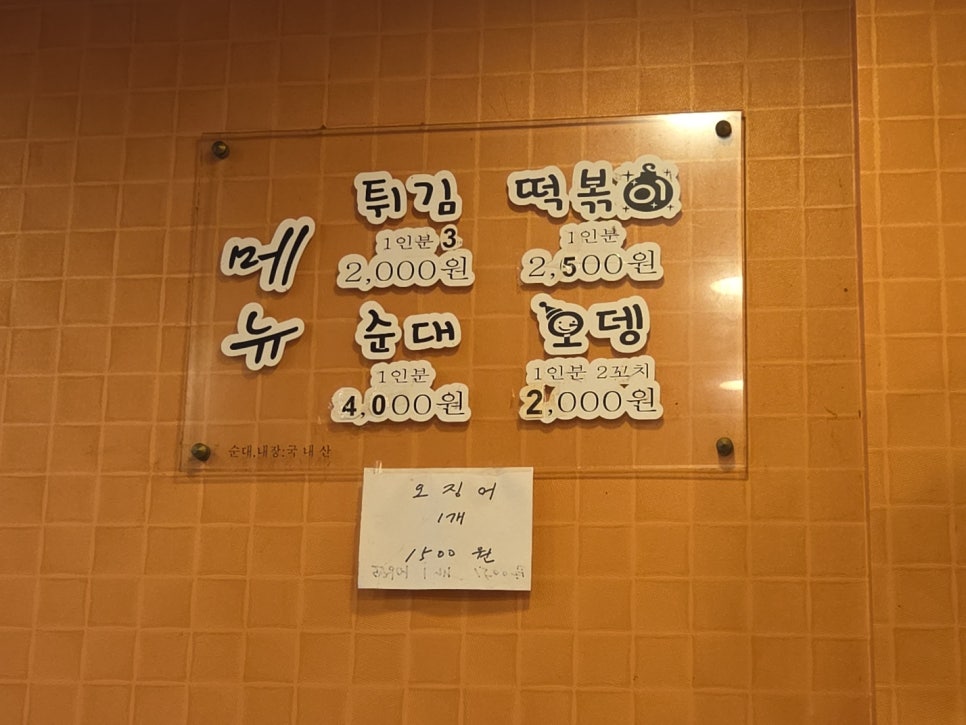 메뉴
튀김
1인분 3
2,000원
떡볶이
1인분
2,500원
순대
1인분
4,000원
오뎅
1인분 2꼬치
2,000원
순대,내장:국내산
오징어
1개
1500 원